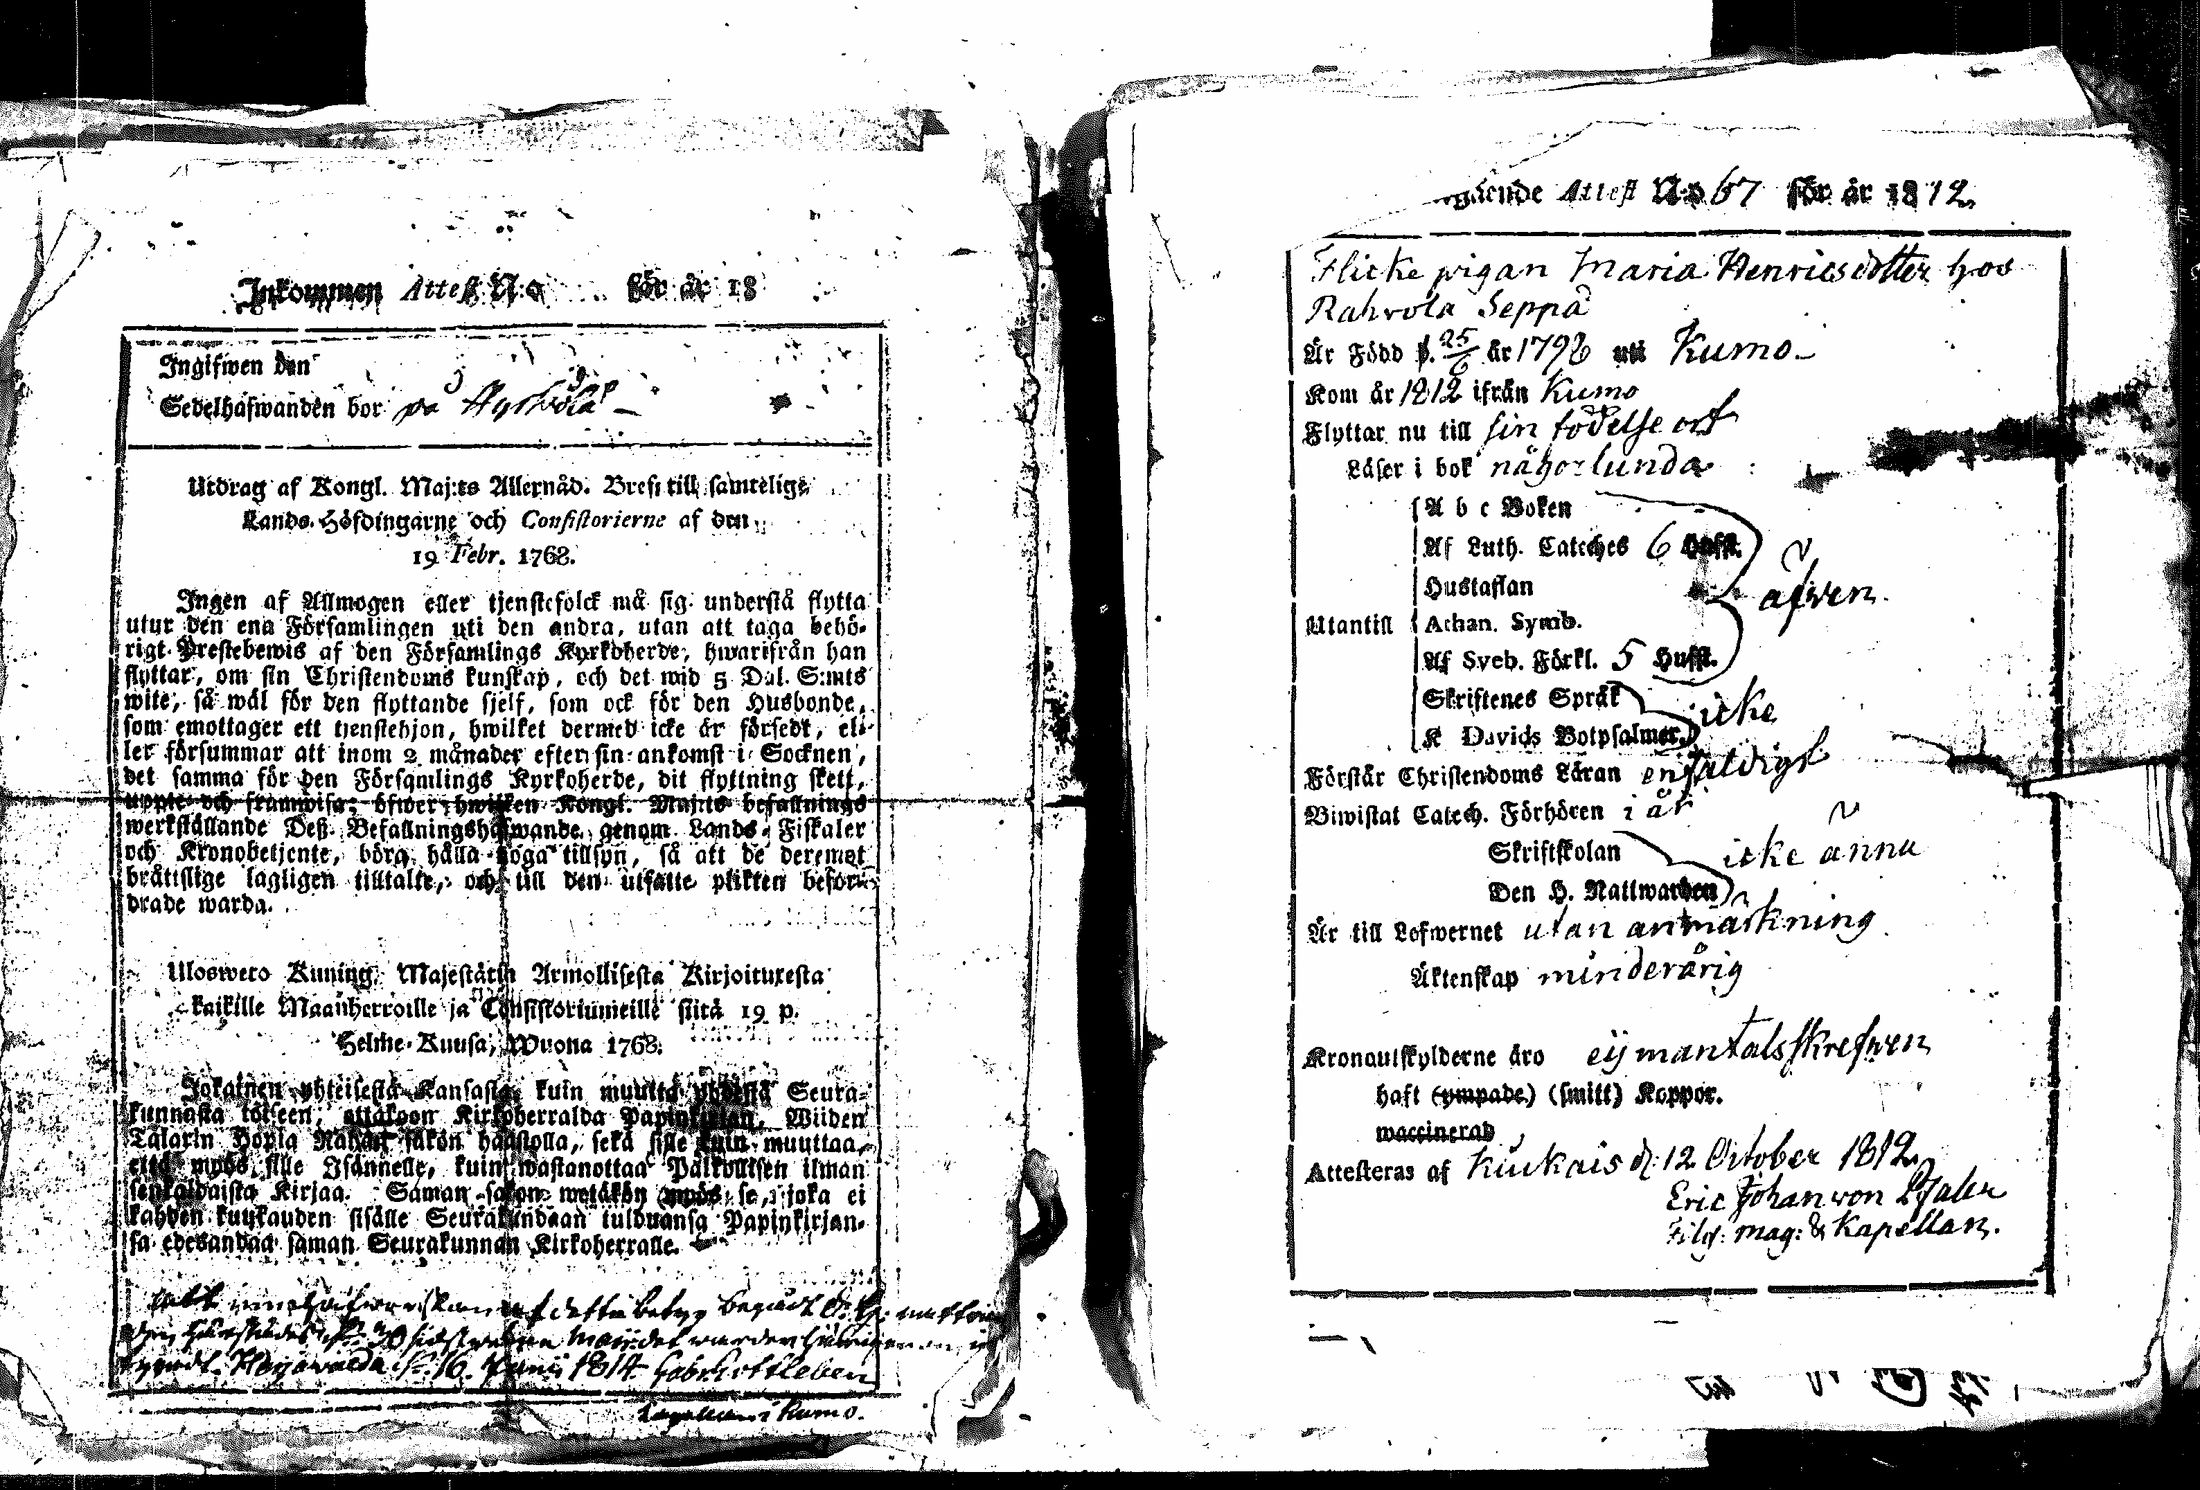 Inkommen Attest N:o för år 18
Ingifwen den
Sedelhafwanden bor på
Utdrag af Kongl. Maj:ts Allernåd. Bref till samtelige
Lands-Höfdingarne och Consistorierne af den
19 Febr. 1768.
Ingen af Allmogen eller tjenstefolck må sig understå flytta
utur den ena Församlingen uti den andra, utan att taga behö-
rigt Prestebewis af den Församlings Kyrkoherde, hwarifrån han
flyttar, om sin Christendoms kunskap, och det wid 5 Dal. S:mts
wite, så wäl för den flyttande sjelf, som ock för den Husbonde,
som emottager ett tjenstehjon, hwilket dermed icke är försedt, el-
ler försummar att inom 2 månader efter sin ankomst i Socknen,
det samma för den Församlings Kyrkoherde, dit flyttning skett,
uppte och framwisa; öfwer hwilken Kongl. Maj:ts befallnings
werkställande Deß Befallningshafwande genom Lands-Fiskaler
och Kronobetjente, böra hålla noga tillsyn, så att de deremot
bråttslige lagligen tilltalte, och till den utsatte plikten beford-
drade warda.
Ulosweto Kuning. Majestätin Armollisesta Kirjoituxesta
kaikille Maanherroille ja Consistoriumeille siitä 19 p.
Helme-Kuusa, Wuona 1768.
Jokainen yhteisestä Kansasta, kuin muutta yhdestä Seura-
kunnasta toiseen, ottakoon Kirkoherralda Papinkirjan, Wiiden
Talarin Hopia Rahan sakon haastolla, sekä sille kuin muuttaa,
että myös sille Isännelle, kuin wastanottaa Palkollisen ilman
senkaldaista Kirjaa. Saman sakon wetäkön myös se, joka ei
kahden kuukauden sisälle Seurakundaan tulduansa Papinkirjan-
sa edesandaa saman Seurakunnan Kirkoherralle.
af detta betyg
16 Junii 1814 Gabr. Gottleben
Capellan i Kumo.
gående Attest N:o 67 för år 1812
Flicke pigan Maria Henricsdotter hos
Rahvola Seppä
Är Född d. 25/6 år 1798 uti Kumo
Kom år 1812 ifrån Kumo
Flyttar nu till sin födelse ort
Läser i bok någorlunda
A b c Boken
Af Luth. Cateches 6 Hufst.
Hustaflan
äfwen
Utantill Athan. Symb.
Af Sveb. Förkl. 5 Hufst.
Skriftenes Språk
icke
K Davids Botpsalmer
Förstår Christendoms Läran enfaldigt
Biwistat Catech. Förhören i år
Skriftskolan
icke ännu
Den H. Nattwarden
Är till Lefwernet utan anmärkning
Äktenskap minderårig
Kronoutskylderne äro ej mantalsskrefwen
haft (ympade) (smitt) Koppor.
waccinerad
Attesteras af Kiukais d. 12 October 1812
Eric Johan von Pfaler
Filos: mag: & Kapellan.